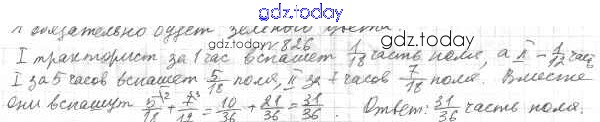 gdz.today
и обязательно будет зеленого цвета
gdz.today
№ 826
I тракторист за 1 час вспашет 1/18 часть поля, а II - 1/12 часть
I за 5 часов вспашет 5/18 поля, II за 7 часов 7/18 поля. Вместе
они вспашут 5/18 + 7/12 = 10/36 + 21/36 = 31/36. Ответ: 31/36 часть поля.
gdz.today